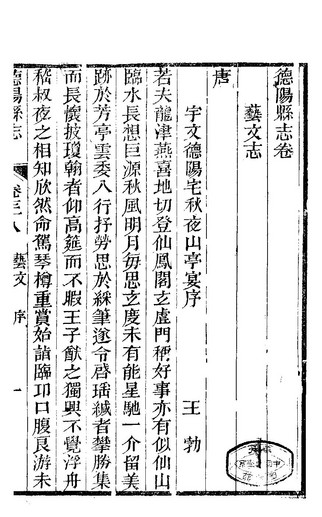 德陽縣志卷
藝文志
唐
宇文德陽宅秋夜山亭宴序
王勃
若夫龍津燕喜地切登仙鳳閣玄虛門稱好事亦有似仙山
臨水長想巨源秋風明月毎思玄度未有能星馳一介留美
跡於芳亭雲委八行抒勞思於綵筆遂令啓瑤緘者攀勝集
而長懷披瓊翰者仰高筵而不暇王子猷之獨興不覺浮舟
嵇叔夜之相知欣然命駕琴樽重賞始詣臨邛口腹良游未
德陽縣志
卷三八
藝文
序
一